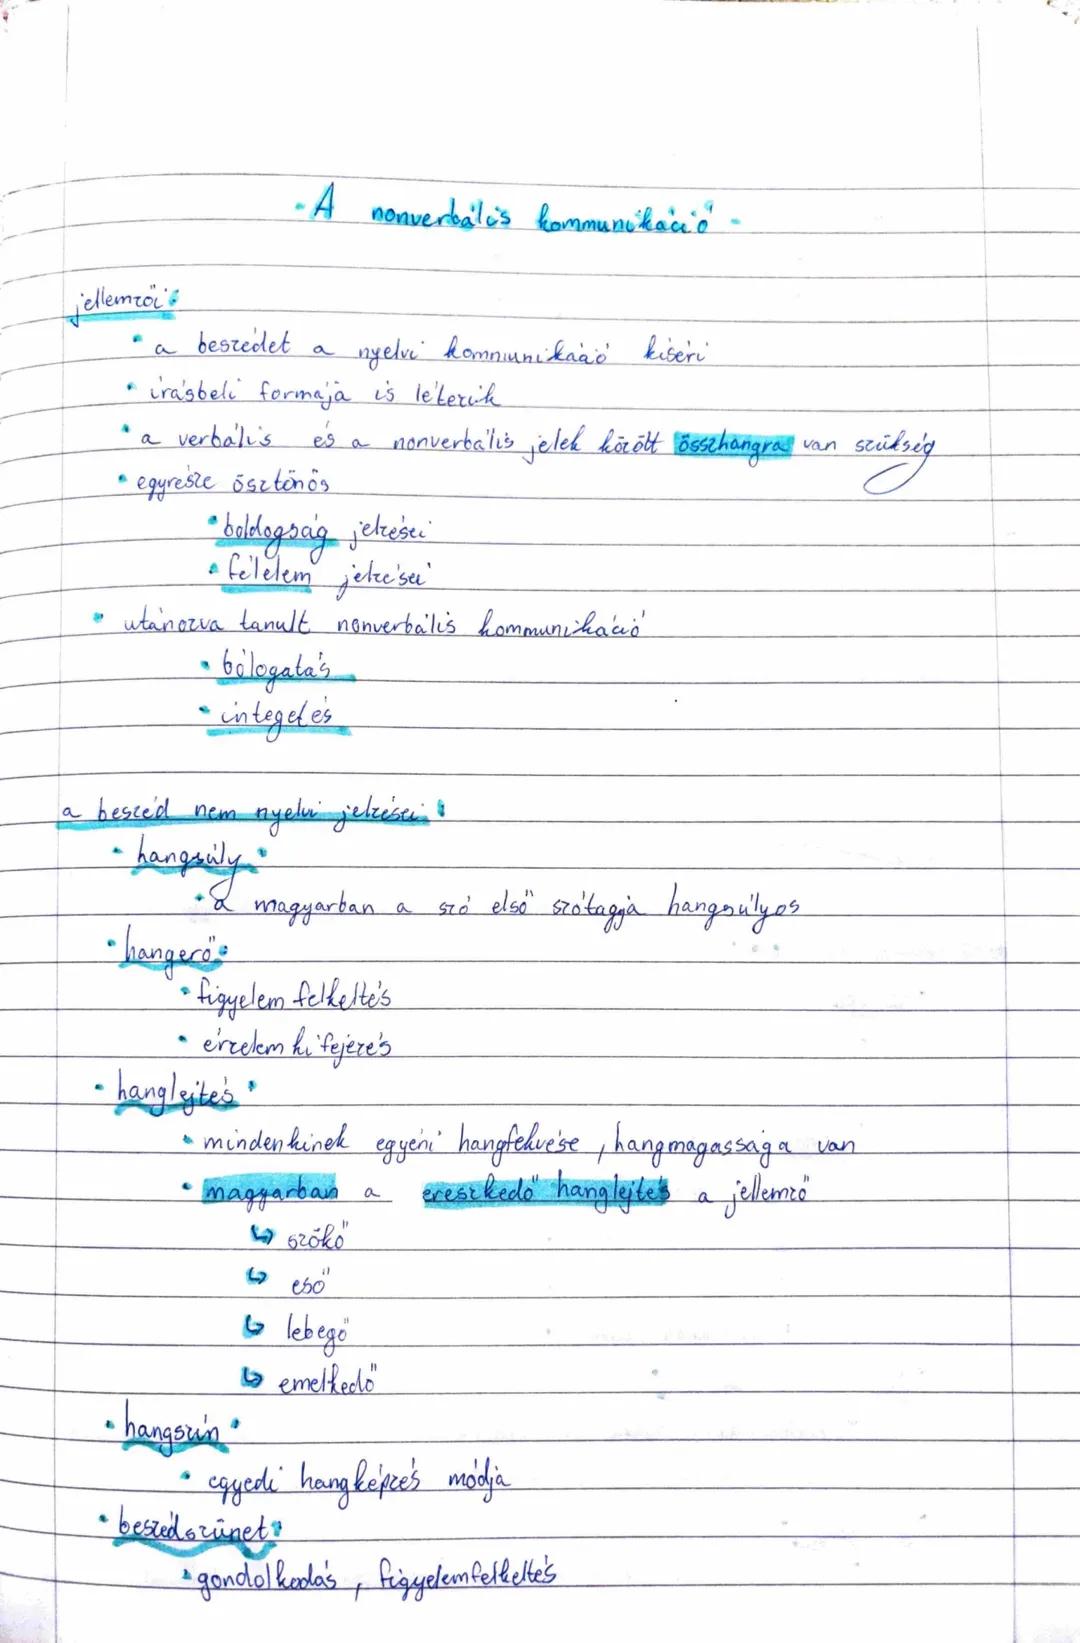 - A nonverbális kommunikáció -
jellemzői:
• a beszédet a nyelvi kommunikáció kiséri
• írásbeli formája is létezik
• a verbális és a nonverbális jelek között összhangra van szükség
• egyrészt ösztönös
• boldogság jelzései
• félelem jelzései
• utánozva tanult nonverbális kommunikáció
• bólogatás
• integetés
a beszéd nem nyelvi jelzései:
• hangsúly:
• a magyarban a szó első szótagja hangsúlyos
• hangerő:
• figyelem felkeltés
• érzelem kifejezés
• hanglejtés:
• mindenkinek egyéni hangfekvése, hangmagassága van
• magyarban a ereszkedő hanglejtés a jellemző
↳ szökő
↳ eső
↳ lebegő
↳ emelkedő
• hangszín:
• egyedi hangképzés módja
• beszédszünet:
• gondolkodás, figyelemfelkeltés